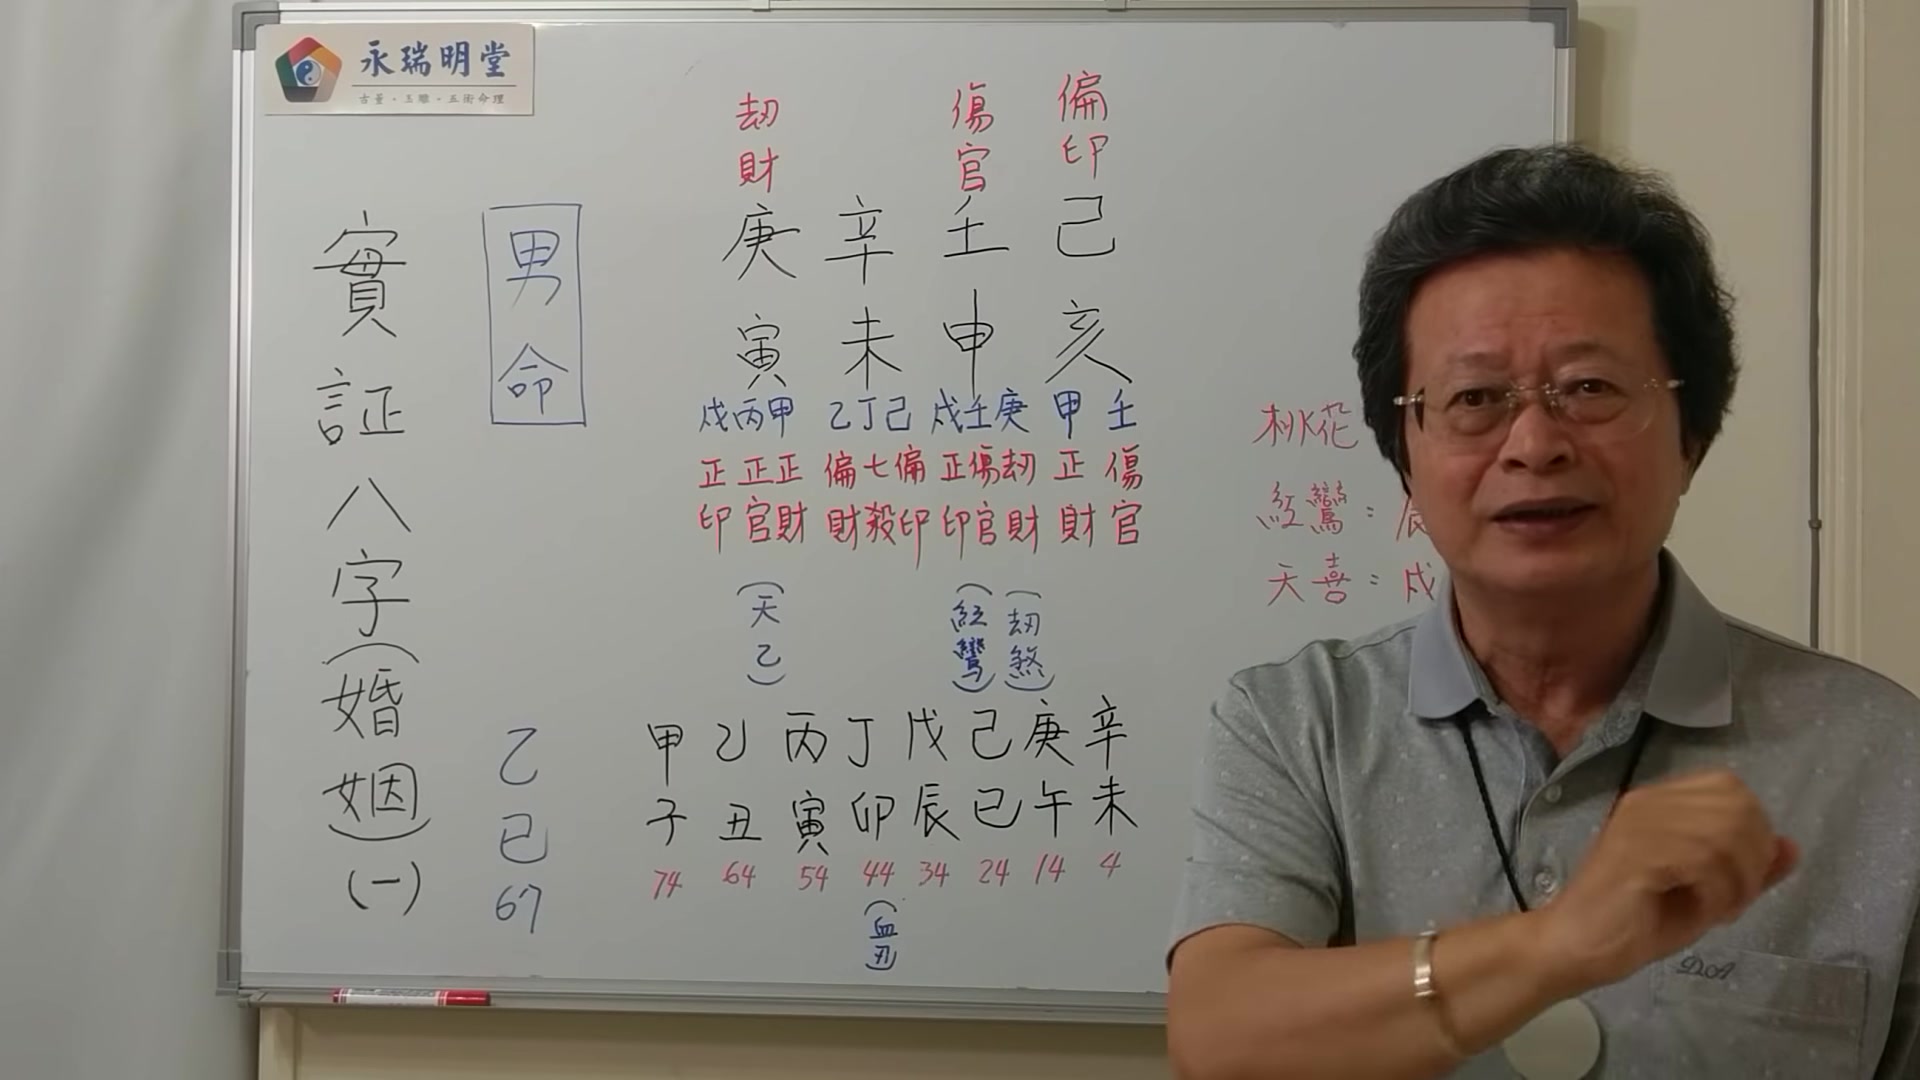 永瑞明堂
古董·玉雕·五術命理
實証八字(婚姻)(一)
男命
劫財 傷官 偏印
庚 辛 壬 己
寅 未 申 亥
戊丙甲 乙丁己 戊壬庚 甲 壬
正正正 偏七偏 正傷劫 正 傷
印官財 財殺印 印官財 財 官
(天乙) (紅鸞) (劫煞)
甲 乙 丙 丁 戊 己 庚 辛
子 丑 寅 卯 辰 巳 午 未
74 64 54 44 34 24 14 4
(血刃)
乙巳
67
桃花
紅鸞:辰
天喜:戌
DOA